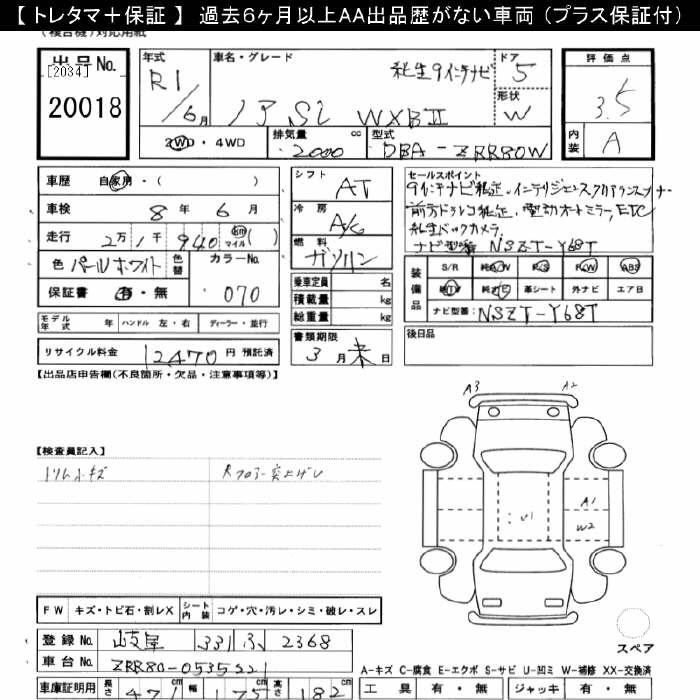 【 トレタマ＋保証 】 過去6ヶ月以上AA出品歴がない車両 (プラス保証付)
(複合機)対応用紙
出品No.
[2034]
20018
年式
R1/6月
車名・グレード
ノア Si WXBⅡ
純正9インチナビ
ドア
5
形状
W
評価点
3.5
内装
A
2WD・4WD
排気量
2000 cc
型式
DBA-ZRR80W
車歴 自家用・( )
車検 8年 6月
走行 2万 1千 940 km マイル ( )
色 パールホワイト 色替 カラーNo.
保証書 有・無 070
シフト AT
冷房 A/C
燃料 ガソリン
乗車定員 名
積載量 kg
総重量 kg
書類期限
3月末日
セールスポイント
9インチナビ純正、インテリジェンスクリアランスソナー
前方ドラレコ純正、電動オートミラー、ETC
純正バックカメラ、
ナビ型番 NSZT-Y68T
装備品
S/R 純A/V P/S P/W ABS
純TV 純ナビ 革シート 外ナビ エアB
ナビ型番: NSZT-Y68T
モデル年式 年 ハンドル 左・右 ディーラー・並行
リサイクル料金 12470 円 預託済
後日品
【出品店申告欄(不良箇所・欠品・注意事項等)】
【検査員記入】
トリム小キズ
Rフロアー突上ゲレ
A3
A2
A1
W2
FW キズ・トビ石・割レX シート内装 コゲ・穴・汚レ・シミ・破レ・スレ
登録No. 岐阜 331 ふ 2368
車台No. ZRR80-0535521
車庫証明用 長さ 471 cm 幅 175 cm 高さ 182 cm
スペア
A-キズ C-腐食 E-エクボ S-サビ U-凹ミ W-補修 XX-交換済
工具 有・無 ジャッキ 有・無